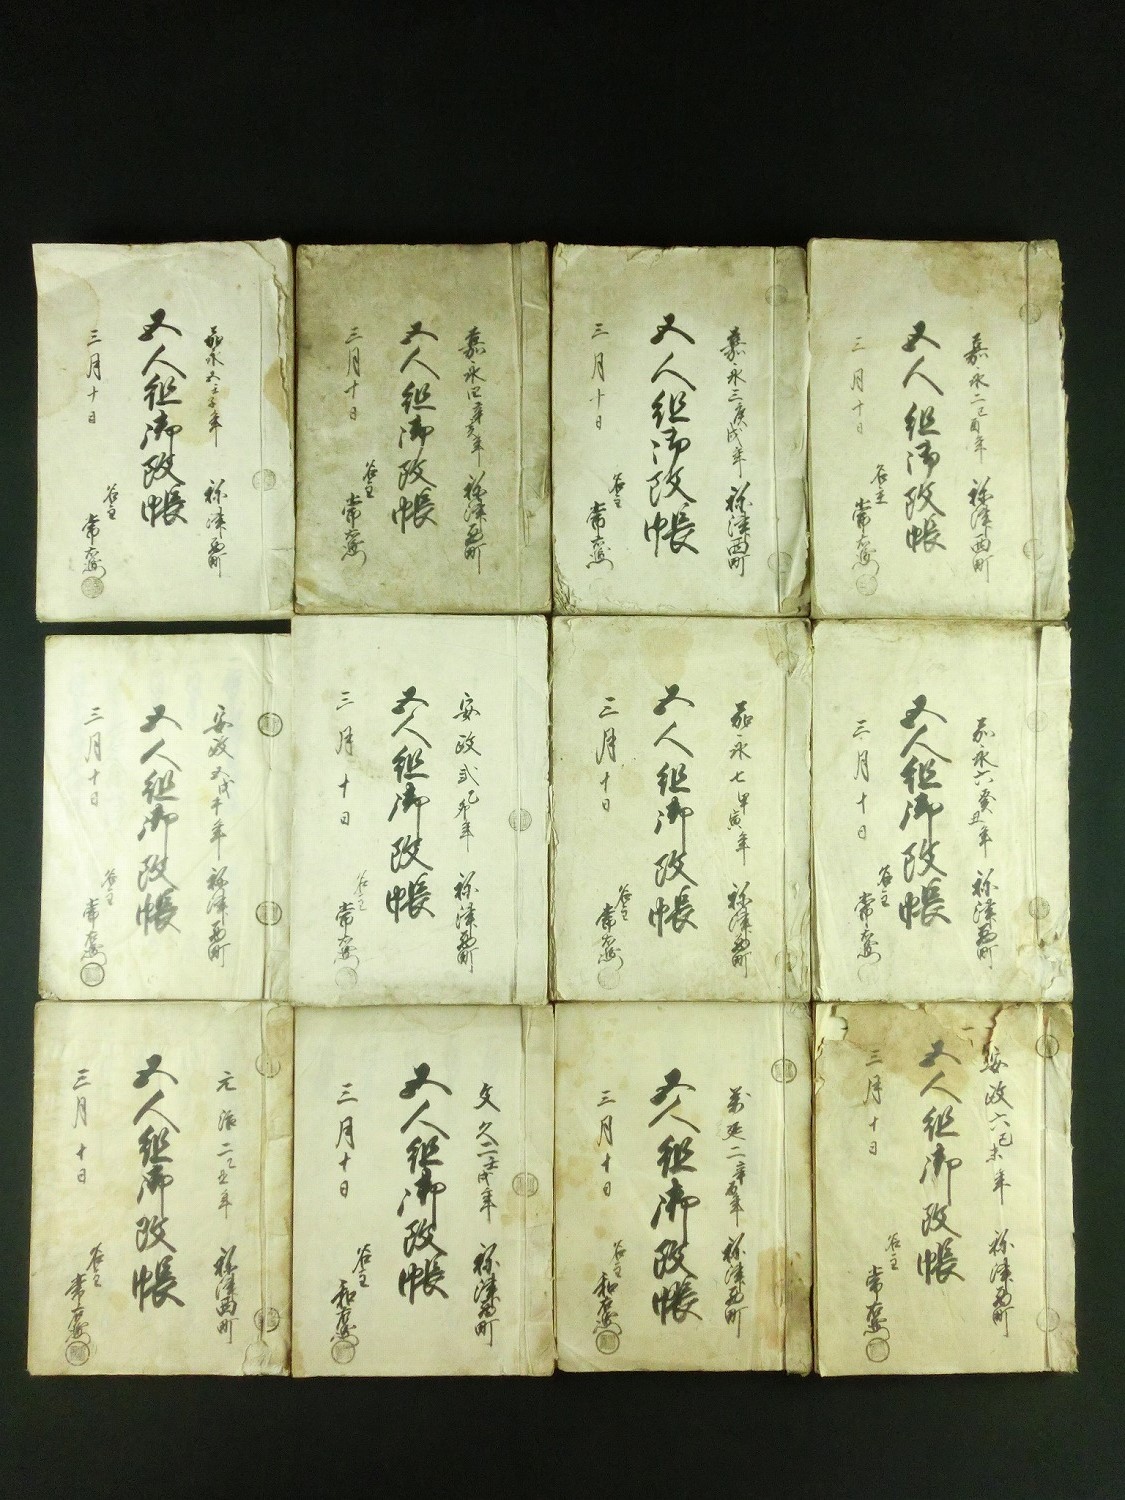 嘉永二己酉年 祢津西町
五人組御改帳
三月十日
名主 常右衛門
嘉永三庚戌年 祢津西町
五人組御改帳
三月十日
名主 常右衛門
嘉永四辛亥年 祢津西町
五人組御改帳
三月十日
名主 常右衛門
嘉永五壬子年 祢津西町
五人組御改帳
三月十日
名主 常右衛門
嘉永六癸丑年 祢津西町
五人組御改帳
三月十日
名主 常右衛門
嘉永七甲寅年 祢津西町
五人組御改帳
三月十日
名主 常右衛門
安政弐乙卯年 祢津西町
五人組御改帳
三月十日
名主 常右衛門
安政五戊午年 祢津西町
五人組御改帳
三月十日
名主 常右衛門
安政六己未年 祢津西町
五人組御改帳
三月十日
名主 常右衛門
萬延二辛酉年 祢津西町
五人組御改帳
三月十日
名主 和右衛門
文久二壬戌年 祢津西町
五人組御改帳
三月十日
名主 和右衛門
元治二乙丑年 祢津西町
五人組御改帳
三月十日
名主 常右衛門